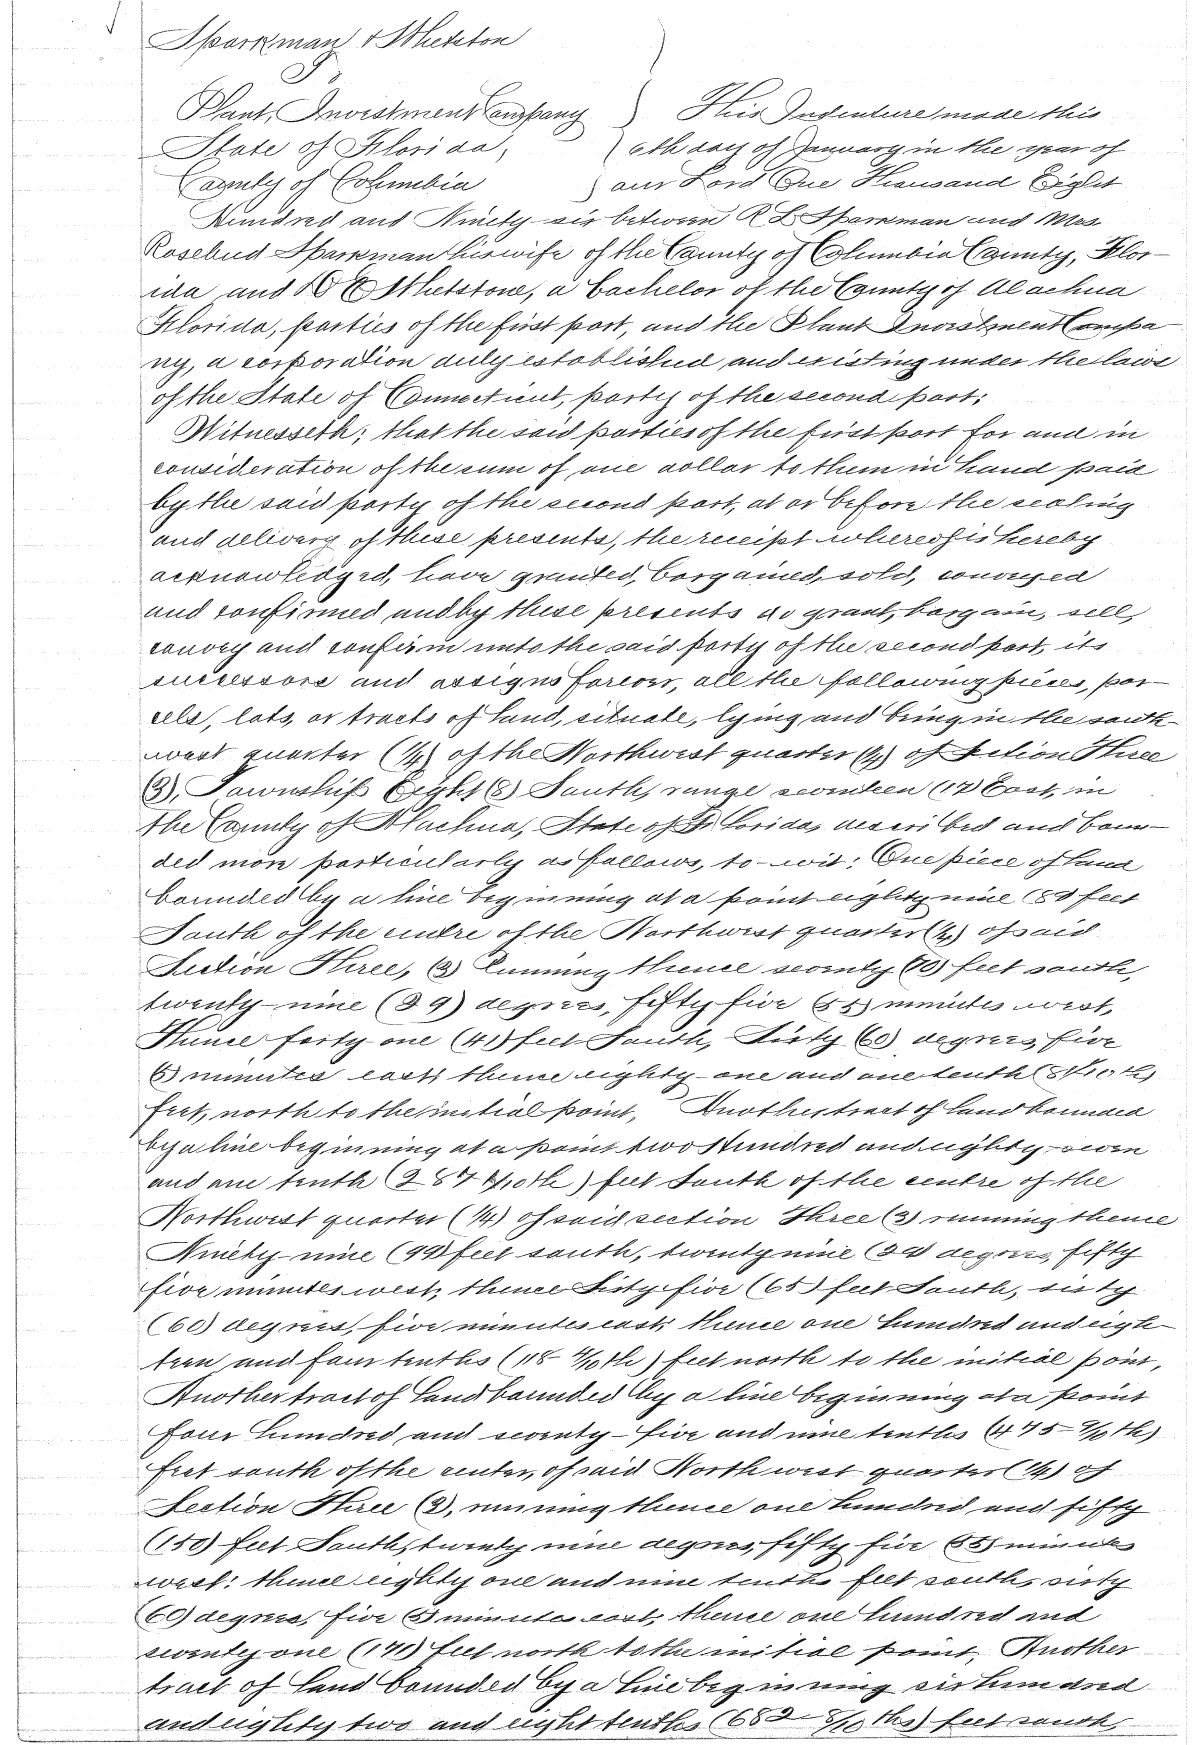 Sparkman & Whetston
To
Plant, Investment Company } This Indenture made this
State of Florida, } 6th day of January in the year of
County of Columbia } our Lord One Thousand Eight
Hundred and Ninety-six between R L Sparkman and Mrs
Rosebud Sparkman his wife of the County of Columbia County, Flor-
ida and D E Whetstone, a bachelor of the County of Alachua
Florida, parties of the first part, and the Plant Investment Compa-
ny, a corporation duly established and existing under the laws
of the State of Connecticut, party of the second part:
Witnesseth; that the said parties of the first part for and in
consideration of the sum of one dollar to them in hand paid
by the said party of the second part, at or before the sealing
and delivery of these presents, the receipt whereof is hereby
acknowledged, have granted, bargained, sold, conveyed
and confirmed and by these presents do grant, bargain, sell,
convey and confirm unto the said party of the second part, its
successors and assigns forever, all the following pieces, par-
cels, lots, or tracts of land, situate, lying and being in the south-
west quarter (1/4) of the Northwest quarter (1/4) of Section Three
(3), Township Eight (8) South, range seventeen (17) East, in
the County of Alachua, State of Florida, described and boun-
ded more particularly as follows, to-wit: One piece of land
bounded by a line beginning at a point eighty nine (89) feet
South of the centre of the Northwest quarter (1/4) of said
Section Three, (3) running thence seventy (70) feet south,
twenty-nine (29) degrees, fifty five (55) minutes west,
Thence forty-one (41) feet South, Sixty (60) degrees, five
(5) minutes east, thence eighty-one and one tenth (81 1/10th)
feet, north to the initial point, Another tract of land bounded
by a line beginning at a point two Hundred and eighty-seven
and one tenth (287 1/10th) feet South of the centre of the
Northwest quarter (1/4) of said section Three (3) running thence
Ninety-nine (99) feet south, twenty nine (29) degrees, fifty
five minutes west, thence Sixty five (65) feet South, sixty
(60) degrees, five minutes east, thence one hundred and eigh-
teen and four tenths (118-4/10th) feet north to the initial point,
Another tract of land bounded by a line beginning at a point
four hundred and seventy-five and nine tenths (475-9/10th)
feet south of the center, of said North west quarter (1/4) of
Section Three (3), running thence one hundred and fifty
(150) feet South, twenty nine degrees, fifty five (55) minutes
west: thence eighty one and nine tenths feet south, sixty
(60) degrees, five (5) minutes east, thence one hundred and
seventy one (171) feet north to the initial point, Another
tract of land bounded by a line beginning six hundred
and eighty two and eight tenths (682-8/10ths) feet south,